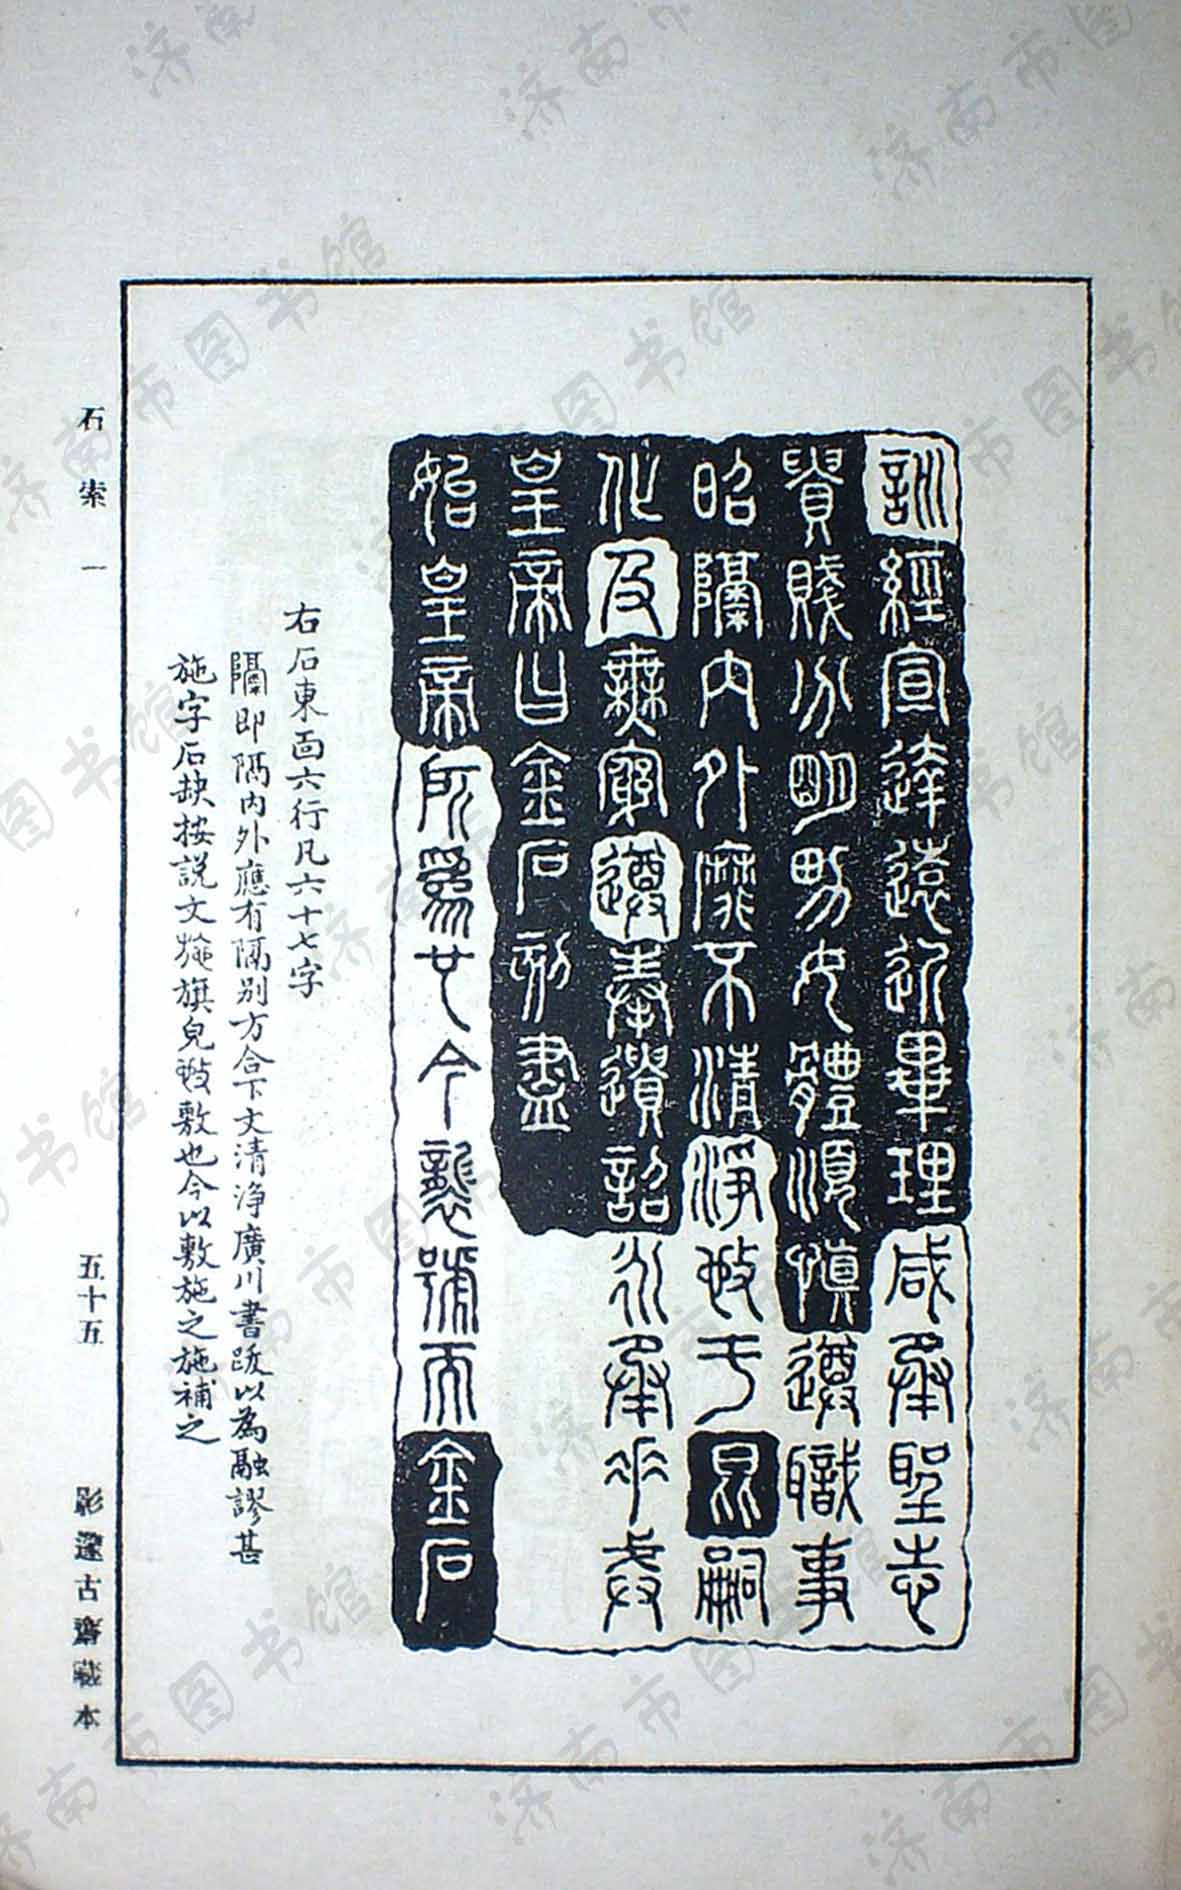 訓經宣達遠近畢理咸承聖志
貴賤分明男女體順慎遵職事
昭隔內外靡不清淨施于昆嗣
化及無窮遵奉遺詔永承重戒
皇帝曰金石刻盡
始皇帝所為也今襲號而金石
右石東面六行凡六十七字
隔即隔內外應有隔别方合下文清净廣川書跋以為融謬甚
施字石缺按説文施旗皃㪫敷也今以敷施之施補之
石索 一
五十五
影邃古齋藏本
济南市图书馆